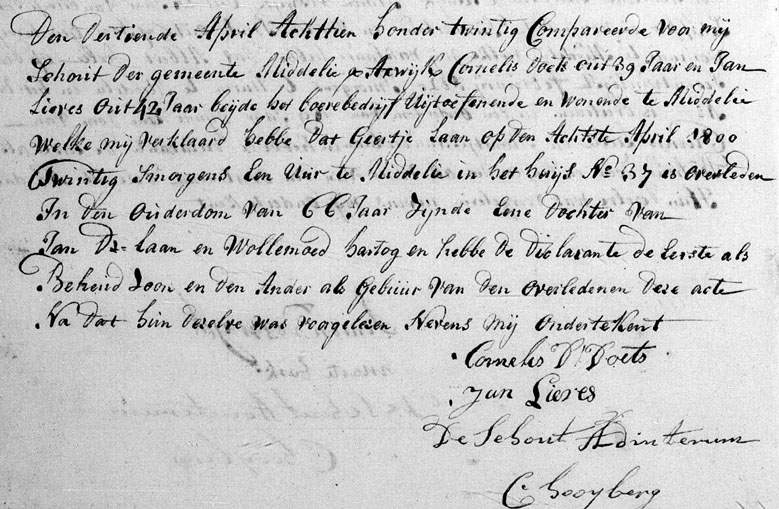 Den Dertiende April Achttien honder twintig Compareerde voor mij
Schout Der gemeente Middelie & Axwijk Cornelis Doets out 39 Jaar en Jan
Lieres Out 42 Jaar beijde het boerebedrijf Uijtoefenende en wonende te Middelie
Welke mij verklaard hebbe Dat Geertje Laan op den Achtste April 1800
Twintig Smorgens Een Uur te Middelie in het huijs No 37 is overleden
In den Ouderdom van 66 Jaar Zijnde Eene Dochter van
Jan Dz Laan en Wollemoed hartog en hebbe De Declarante de Eerste als
Behend Zoon en den Ander als Gebuur Van den overledenen Deze acte
Na Dat hun dezelve was voorgelezen Nevens mij Ondertekent
Cornelis Dz Doets
Jan Lieres
De Schout Adinterum
C. hooyberg